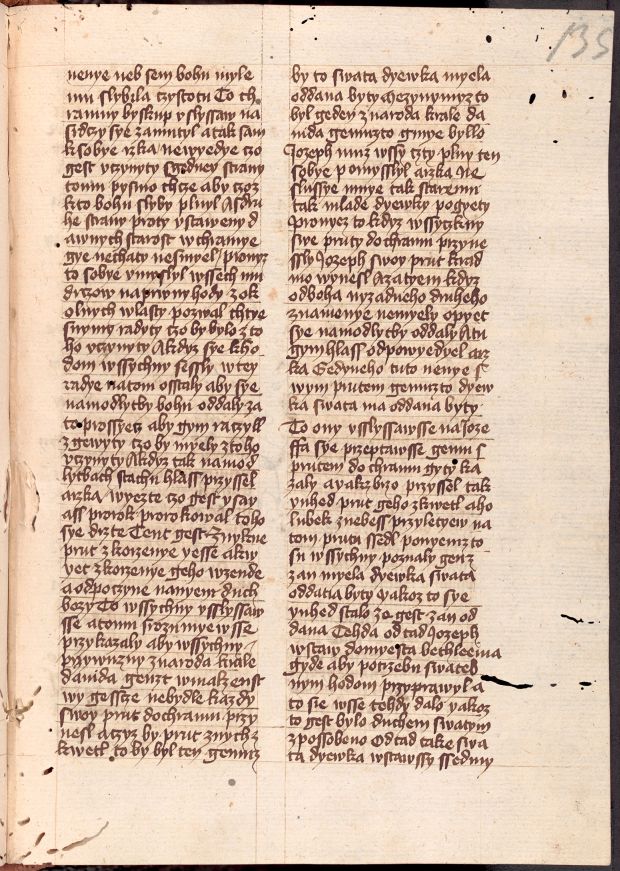 135
nenye neb sem bohu myle
mu slybila czystotu To th
ramny byskup vslyssaw na
sidczy sye zamutyl a tak sam
k sobye rzka newyedye czo
gest vczynyty Sgedney strany
tomu pysmo chcze aby czoz
kto bohu slyby plnyl A sdru
he strany proty vstaweny d
awnych starost w chramye
gye nechaty nesmyel Pronyz
to sobye vmyslyl wssech mu
drzow na prwny hody z ok
olnych wlasty pozwal chtye
snymy radyty czo by bylo z to
ho vczynyty A kdyz sye kho
dom wssychny sessly w tey
radye na tom ostaly aby sye
na modlytby bohu oddaly za
to prossyecz aby gym raczyll
zgewyty czo by myely z toho
vczynyty A kdyz tak na mod
lytbach stachu hlass przyssel
arzka wyezte czo gest ysay
ass prorok prorokowal toho
sye drzte Tent gest Znykne
prut z korzenye yesse a kw
yet z korzenye geho wzende
a odpoczyne na nyem duch
bozy To wssychny vslyssaw
sse a tomu srozumyewsse
przykazaly aby wssychny
prywuzny z naroda krale
dauida genzt w malzenst
wy gessze nebydle kazdy
swoy prut do chramu przy
nesl a czyz by prut znych z
kwetl to by byl ten gemuz
by to swata dyewka myela
oddana byty Mezy nymyz to
byl geden z naroda krale da
uida gemuzto gmye byllo
Jozeph muz wssy czty plny ten
sobye pomyslyl arzka Ne
slussye mnye tak staremu
tak mlade dyewky pogyety
Pronyez to kdyz wssyczkny
swe pruty do chramu przyne
ssly Jozeph swoy prut krad
mo wynesl A zatyem kdyz
od boha nyzadneho druheho
znamenye nemyely opyet
sye na modlytby oddaly A tu
gym hlass odpowyedyel arz
ka Gedyneho tuto nenye s
wym prutem gemuzto dyew
ka swata ma oddana byty
To ony vslyssawsse na Joze
ffa sye przeptawsse gemu s
prutem do chramu gyty ka
zaly a yakz brzo przyssel tak
yuhed prut geho zkwetl a ho
lubek z nebess przyletyew na
tom prutu ssedl po nyemz to
su wssychny poznaly genz
zan myela dyewka swata
oddana byty Yakoz to sye
yuhed stalo ze gest zan od
dana Tehda odtad Jozeph
wstaw do myesta bethleema
gyde aby potrzebu swateb
nym hodom przyprawyl a
to sie wsse tehdy dalo yakoz
to gest bylo duchem swatym
zpossobeno Odtad take swa
ta dyewka wstawssy ssedmy